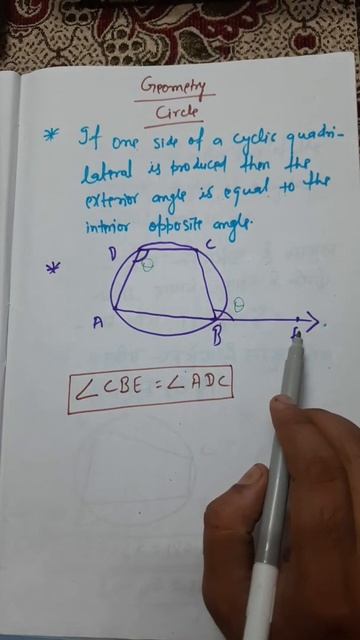 Geometry
Circle
* If one side of a cyclic quadri-
lateral is produced then the
exterior angle is equal to the
intrior opposite angle.
*
D C
θ
θ
A B
∠CBE = ∠ADC